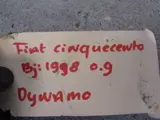 Fiat cinquecento
Bj: 1998 0.9
Dynamo